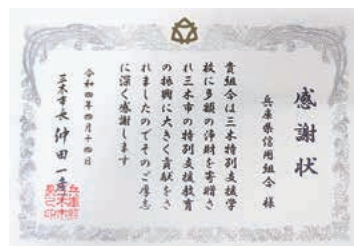 感謝状
兵庫県信用組合 様
貴組合は三木特別支援学
校に多額の浄財を寄贈さ
れ三木市の特別支援教育
の振興に大きく貢献をさ
れましたのでそのご厚志
に深く感謝します
令和四年四月十四日
三木市長 仲田一彦